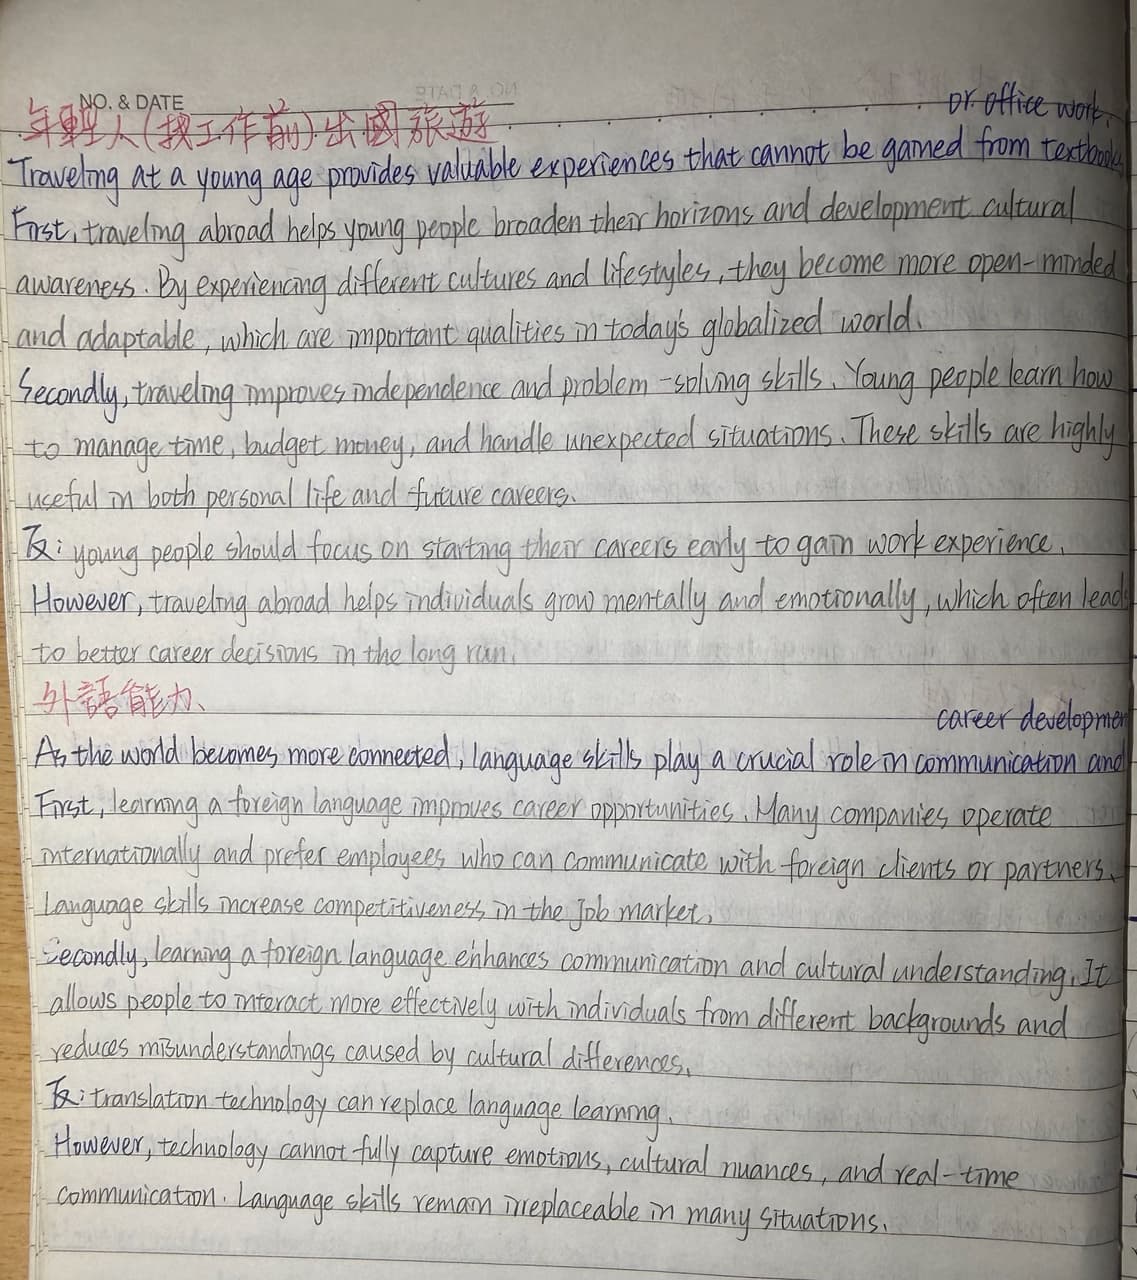 NO. & DATE
年輕人(找工作前)出國旅遊
or office work.
Traveling at a young age provides valuable experiences that cannot be gained from textbooks
First, traveling abroad helps young people broaden their horizons and development cultural
awareness. By experiencing different cultures and lifestyles, they become more open-minded
and adaptable, which are important qualities in today's globalized world.
Secondly, traveling improves independence and problem-solving skills. Young people learn how
to manage time, budget money, and handle unexpected situations. These skills are highly
useful in both personal life and future careers.
反: young people should focus on starting their careers early to gain work experience.
However, traveling abroad helps individuals grow mentally and emotionally, which often leads
to better career decisions in the long run.
外語能力、
career developmen
As the world becomes more connected, language skills play a crucial role in communication and
First, learning a foreign language improves career opportunities. Many companies operate
internationally and prefer employees who can communicate with foreign clients or partners.
Language skills increase competitiveness in the job market.
Secondly, learning a foreign language enhances communication and cultural understanding. It
allows people to interact more effectively with individuals from different backgrounds and
reduces misunderstandings caused by cultural differences.
反: translation technology can replace language learning.
However, technology cannot fully capture emotions, cultural nuances, and real-time
communication. Language skills remain irreplaceable in many situations.